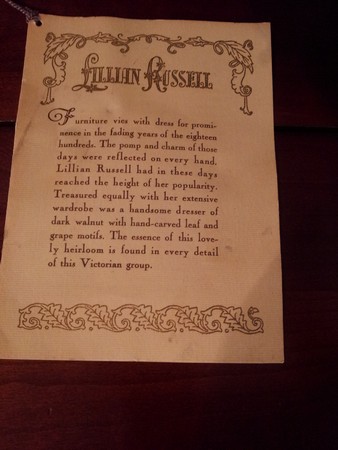 LILLIAN RUSSELL
Furniture vies with dress for promi-
nence in the fading years of the eighteen
hundreds. The pomp and charm of those
days were reflected on every hand.
Lillian Russell had in these days
reached the height of her popularity.
Treasured equally with her extensive
wardrobe was a handsome dresser of
dark walnut with hand-carved leaf and
grape motifs. The essence of this love-
ly heirloom is found in every detail
of this Victorian group.